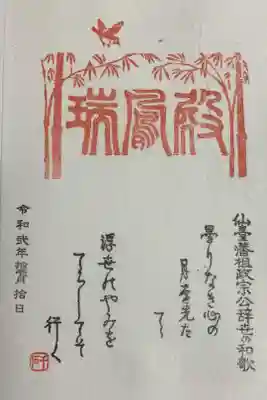 瑞鳳殿
仙臺藩祖政宗公辞世の和歌
曇りなき心の
月を先た
てゝ
浮世のやみを
てらしてそ
行く
令和弐年拾月拾日